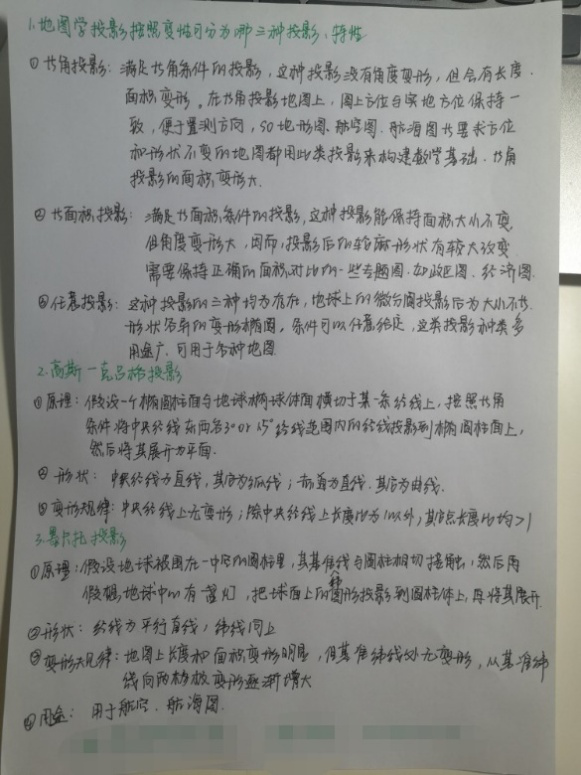 1.地图学投影按照变性可分为哪三种投影、特性
①等角投影：满足等角条件的投影，这种投影没有角度变形，但会有长度、
面积变形。在等角投影地图上，图上方位与实地方位保持一
致，便于量测方向，so地形图、航空图、航海图等要求方位
和形状不变的地图都用此类投影来构建数学基础．等角
投影的面积变形大．
②等面积投影：满足等面积条件的投影，这种投影能保持面积大小不变，
但角度变形大，因而，投影后的轮廓形状有较大改变
需要保持正确的面积对比的一些专题图．如政区图、经济图．
③任意投影：这种投影的三种均为存在，地球上的微分圆投影后为大小不等、
形状各异的变形椭圆，条件可以任意给定，这类投影种类多
用途广．可用于各种地图
2.高斯一克吕格投影
①原理：假设一个椭圆柱面与地球椭球体面横切于某一条经线上，按照等角
条件将中央经线东西各3°or 1.5°经线范围内的经线投影到椭圆柱面上，
然后将其展开为平面．
②形状：中央经线为直线，其它为弧线；赤道为直线．其它为曲线．
③变形规律：中央经线上无变形；除中央经线上长度比为1以外，其它点长度比均>1
3.墨卡托投影
①原理：假设地球被围在一中空的圆柱里，其基准线与圆柱相切接触，然后再
假想地球中心有一盏灯，把球面上的图形投影到圆柱体上，再将其展开．
②形状：经线为平行直线，纬线同上
③变形规律：地图上长度和面积变形明显，但基准纬线处无变形，从基准纬
线向两极变形逐渐增大
④用途：用于航空．航海图．